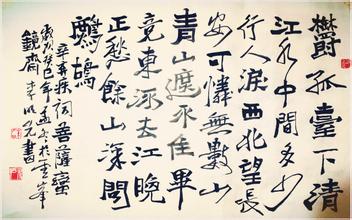 欝孤臺下清
江水中間多少
行人淚西北望長
安可憐無數山
青山遮不住畢
竟東流去江晚
正愁餘山深聞
鷓鴣
辛弃疾詞菩薩蠻
歲次癸巳年孟冬於
鏡齋李書